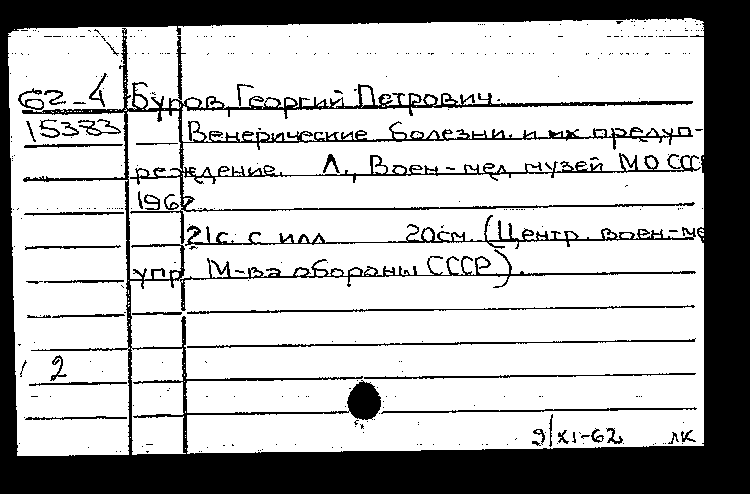 62-4 Буров, Георгий Петрович.
15383 Венерические болезни и их предуп-
реждение. Л., Воен-мед. музей МО СССР
1962
21с. с илл 20см. (Центр. воен-ме
упр. М-ва обороны СССР).
2
9/XI-62 лк